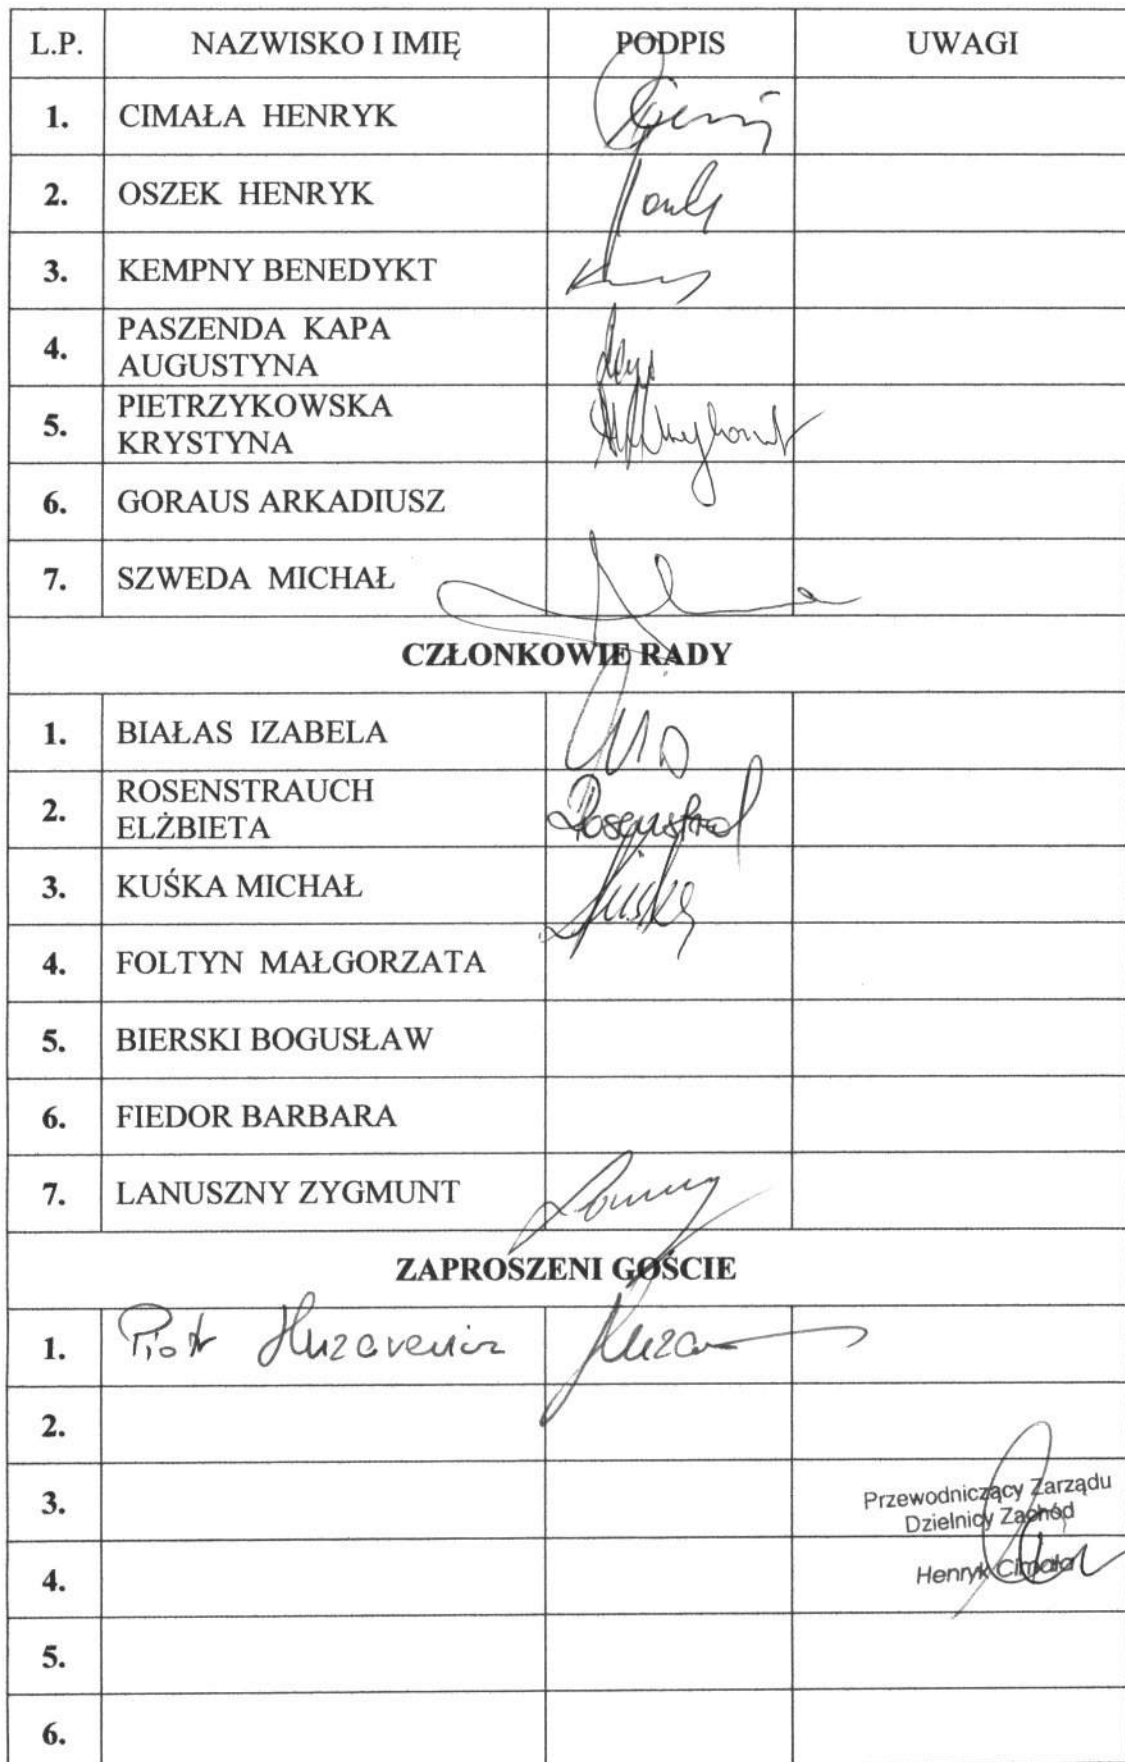 L.P. NAZWISKO I IMIĘ PODPIS UWAGI
1. CIMAŁA HENRYK
2. OSZEK HENRYK
3. KEMPNY BENEDYKT
4. PASZENDA KAPA
AUGUSTYNA
5. PIETRZYKOWSKA
KRYSTYNA
6. GORAUS ARKADIUSZ
7. SZWEDA MICHAŁ
CZŁONKOWIE RADY
1. BIAŁAS IZABELA
2. ROSENSTRAUCH
ELŻBIETA
3. KUŚKA MICHAŁ Kuśka
4. FOLTYN MAŁGORZATA
5. BIERSKI BOGUSŁAW
6. FIEDOR BARBARA
7. LANUSZNY ZYGMUNT
ZAPROSZENI GOŚCIE
1. Piotr
2.
3. Przewodniczący Zarządu
Dzielnicy Zachód
4. Henryk Cimała
5.
6.